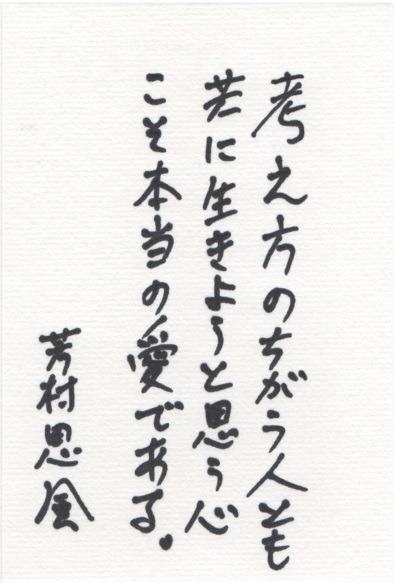 考え方のちがう人とも
共に生きようと思う心
こそ本当の愛である。
芳村思風